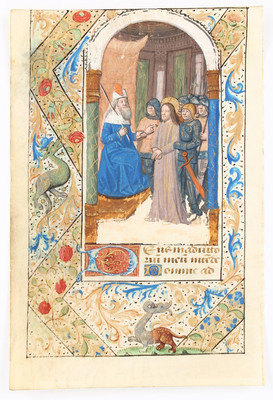 Deus in adiuto
riũ meũ intẽde
Domine ad